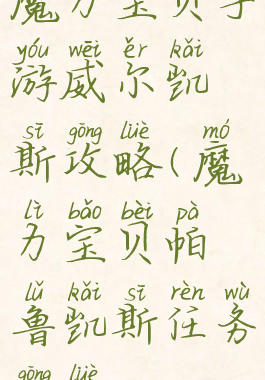 魔力宝贝手
yóu wēi ěr kǎi
游威尔凯
sī gōng lüè mó
斯攻略(魔
lì bǎo bèi pà
力宝贝帕
lǔ kǎi sī rèn wù
鲁凯斯任务
gōng lüè